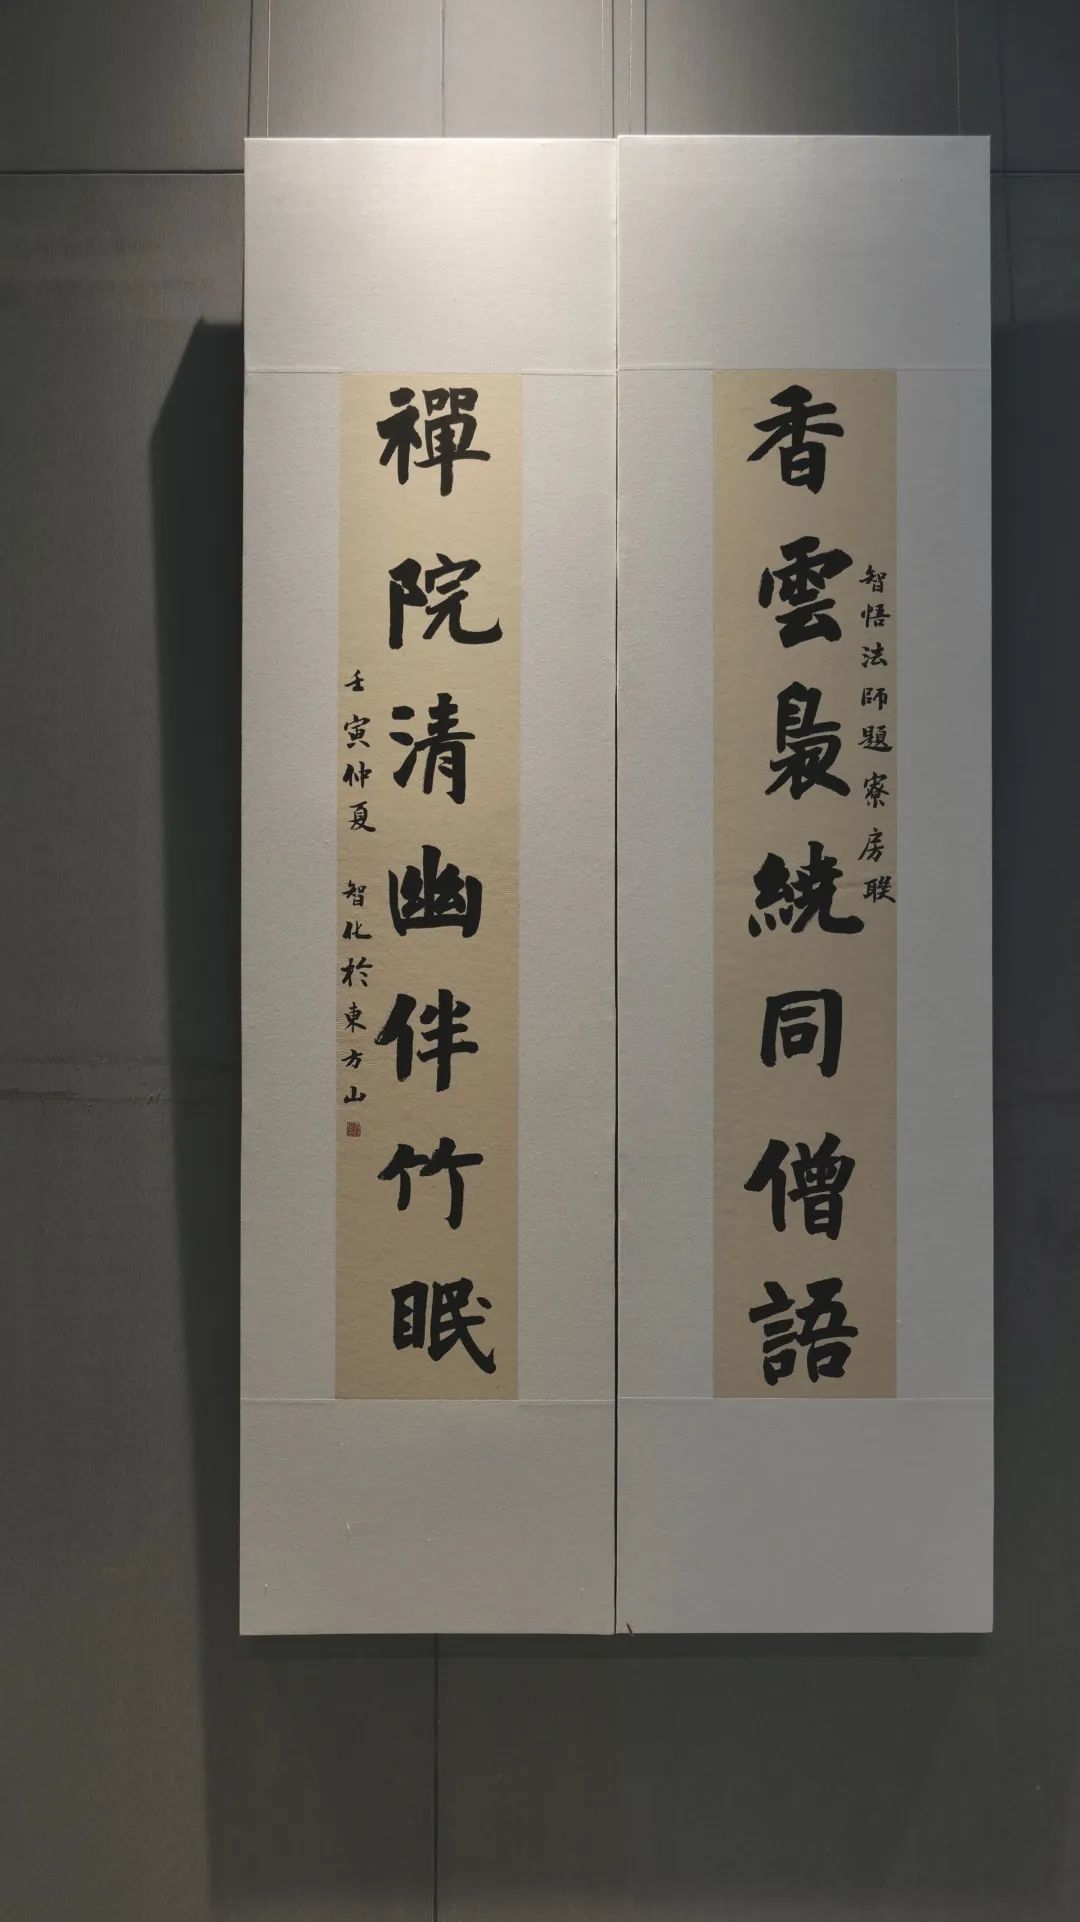 香雲裊繞同僧語
智悟法師題寮房聯
禪院清幽伴竹眠
壬寅仲夏 智化於東方山